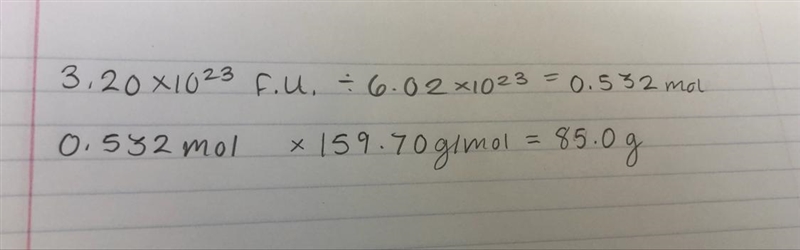 3.20 ×10²³ F.U. ÷ 6.02 ×10²³ = 0.532 mol
0.532 mol × 159.70 g/mol = 85.0 g